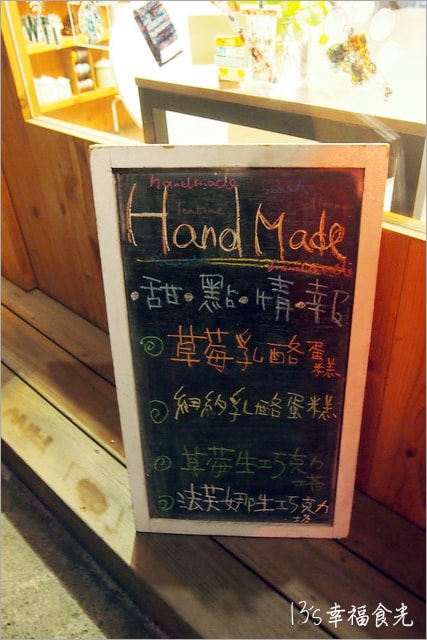 handmade
Hand Made
·甜·點·情·報
草莓乳酪蛋糕
紐約乳酪蛋糕
草莓生巧克力塔
法芙娜生巧克力塔
13's幸福食光